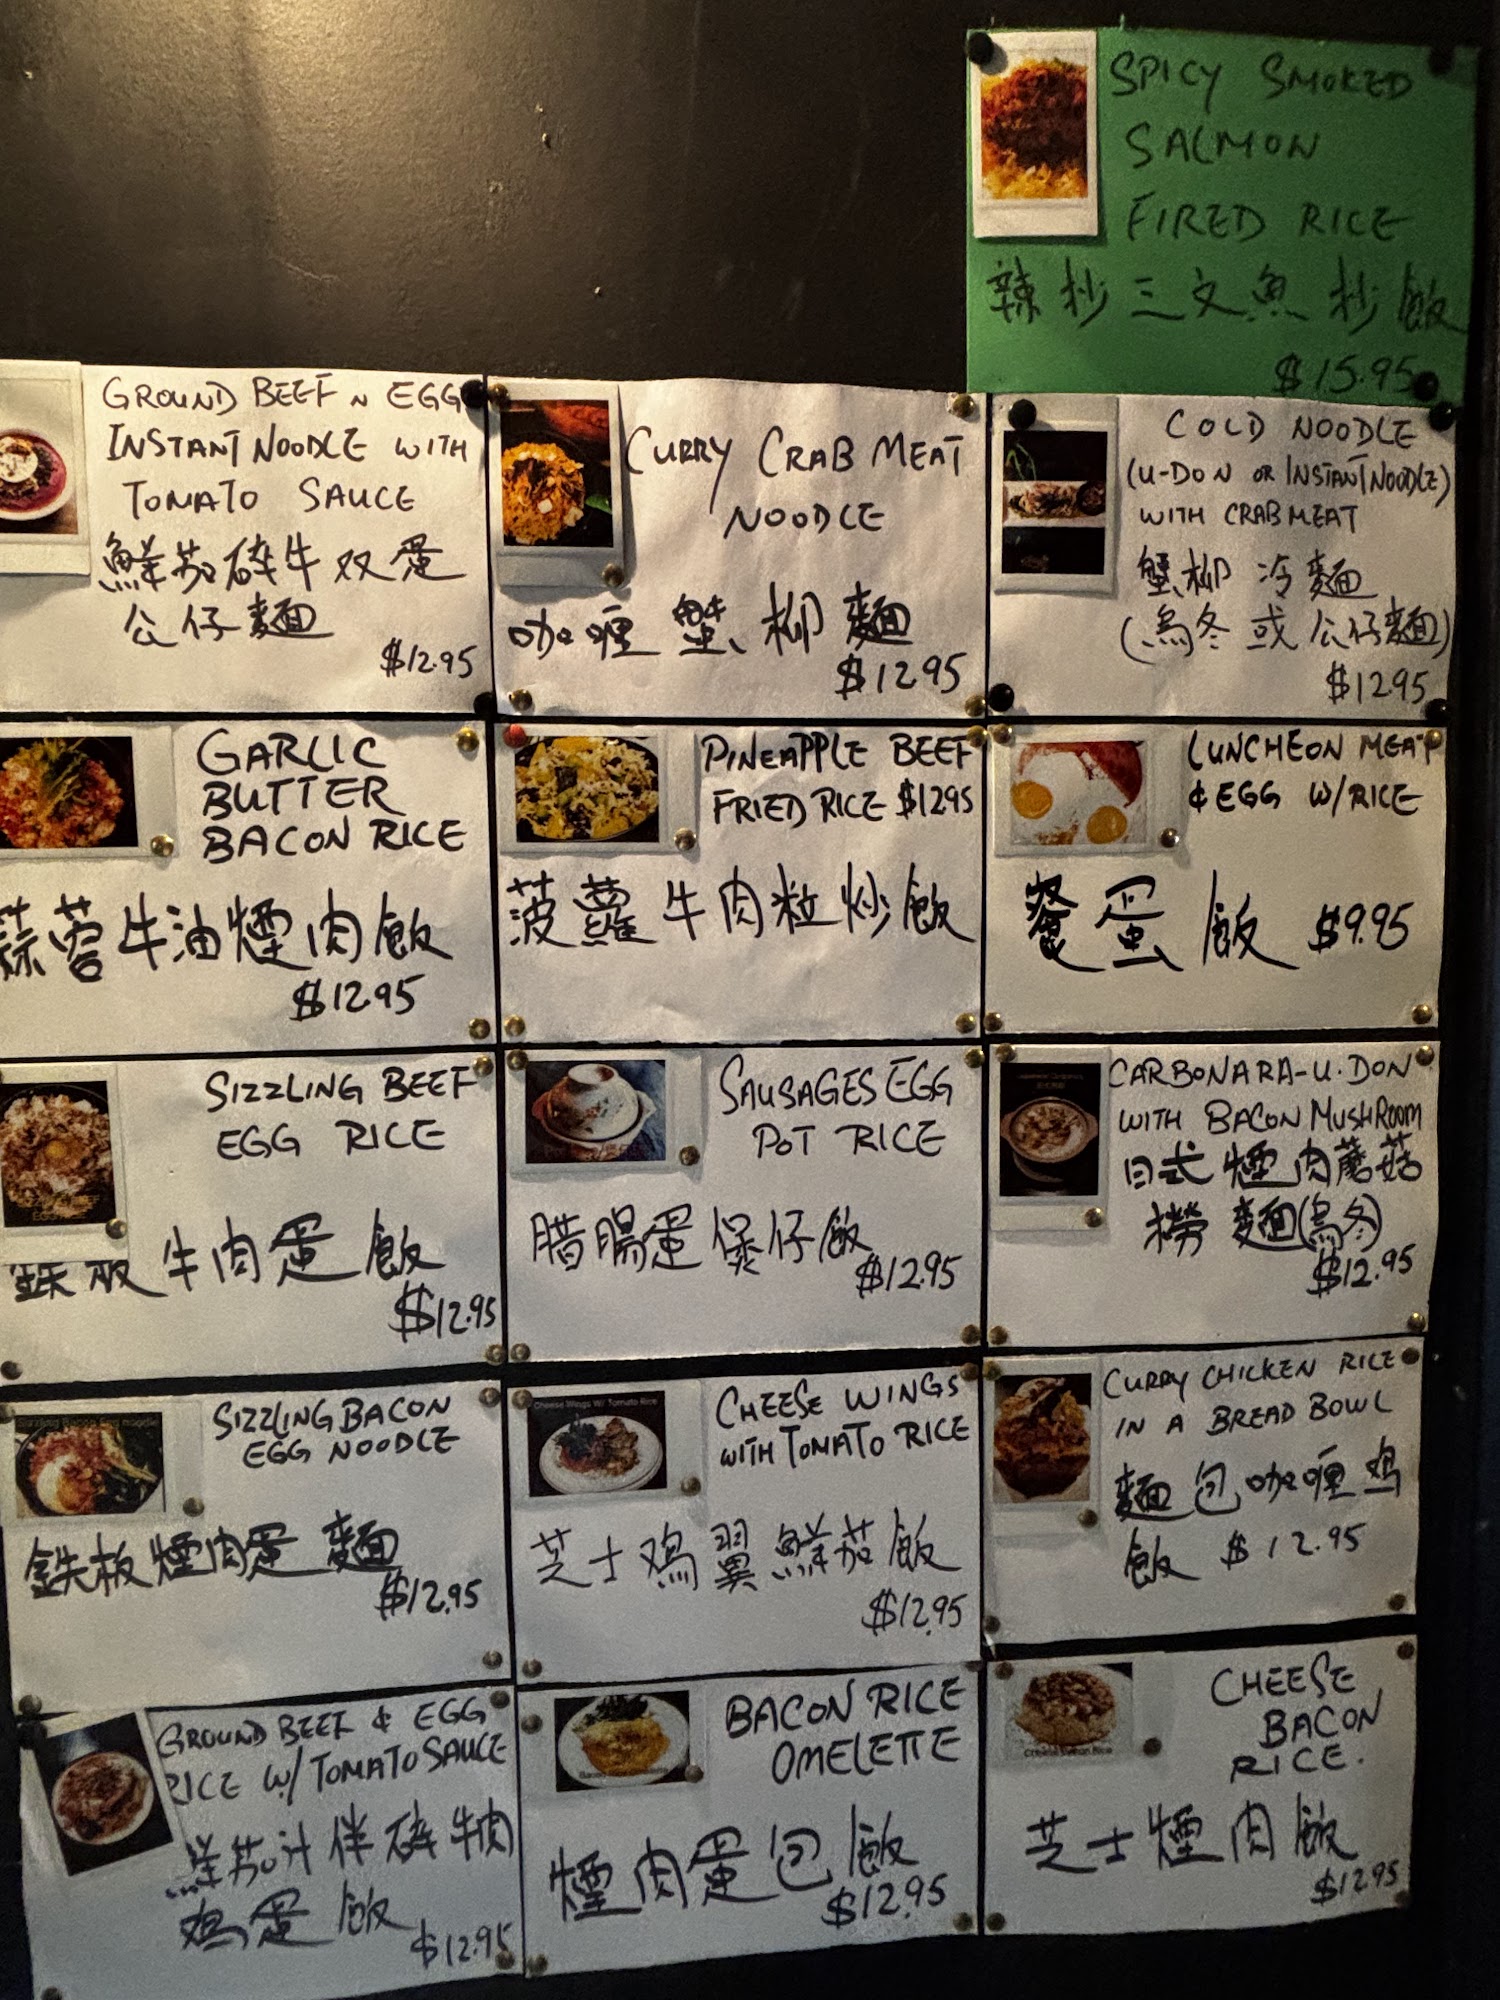 SPICY SMOKED
SALMON
FIRED RICE
辣抄三文魚抄飯
$15.95
GROUND BEEF N EGG
INSTANT NOODLE WITH
TOMATO SAUCE
鮮茄碎牛双蛋
公仔麵
$12.95
CURRY CRAB MEAT
NOODLE
咖喱蟹柳麵
$12.95
COLD NOODLE
(U-DON OR INSTANT NOODLE)
WITH CRAB MEAT
蟹柳冷麵
(烏冬或公仔麵)
$12.95
GARLIC
BUTTER
BACON RICE
蒜蓉牛油煙肉飯
$12.95
PINEAPPLE BEEF
FRIED RICE $12.95
菠蘿牛肉粒炒飯
LUNCHEON MEAT
& EGG W/RICE
餐蛋飯 $9.95
SIZZLING BEEF
EGG RICE
鉄板牛肉蛋飯
$12.95
SAUSAGES EGG
POT RICE
腊腸蛋煲仔飯
$12.95
CARBONARA-U.DON
WITH BACON MUSHROOM
日式煙肉蘑菇
撈麵(烏冬)
$12.95
Sizzling Bacon Egg noodle
SIZZLING BACON
EGG NOODLE
鉄板煙肉蛋麵
$12.95
Cheese Wings W/ Tomato Rice
CHEESE WINGS
WITH TOMATO RICE
芝士鸡翼鮮茄飯
$12.95
CURRY CHICKEN RICE
IN A BREAD BOWL
麵包咖喱鸡
飯 $12.95
GROUND BEEF & EGG
RICE W/TOMATO SAUCE
鮮茄汁伴碎牛肉
鸡蛋飯
$12.95
BACON RICE
OMELETTE
煙肉蛋包飯
$12.95
CHEESE
BACON
RICE.
芝士煙肉飯
$12.95